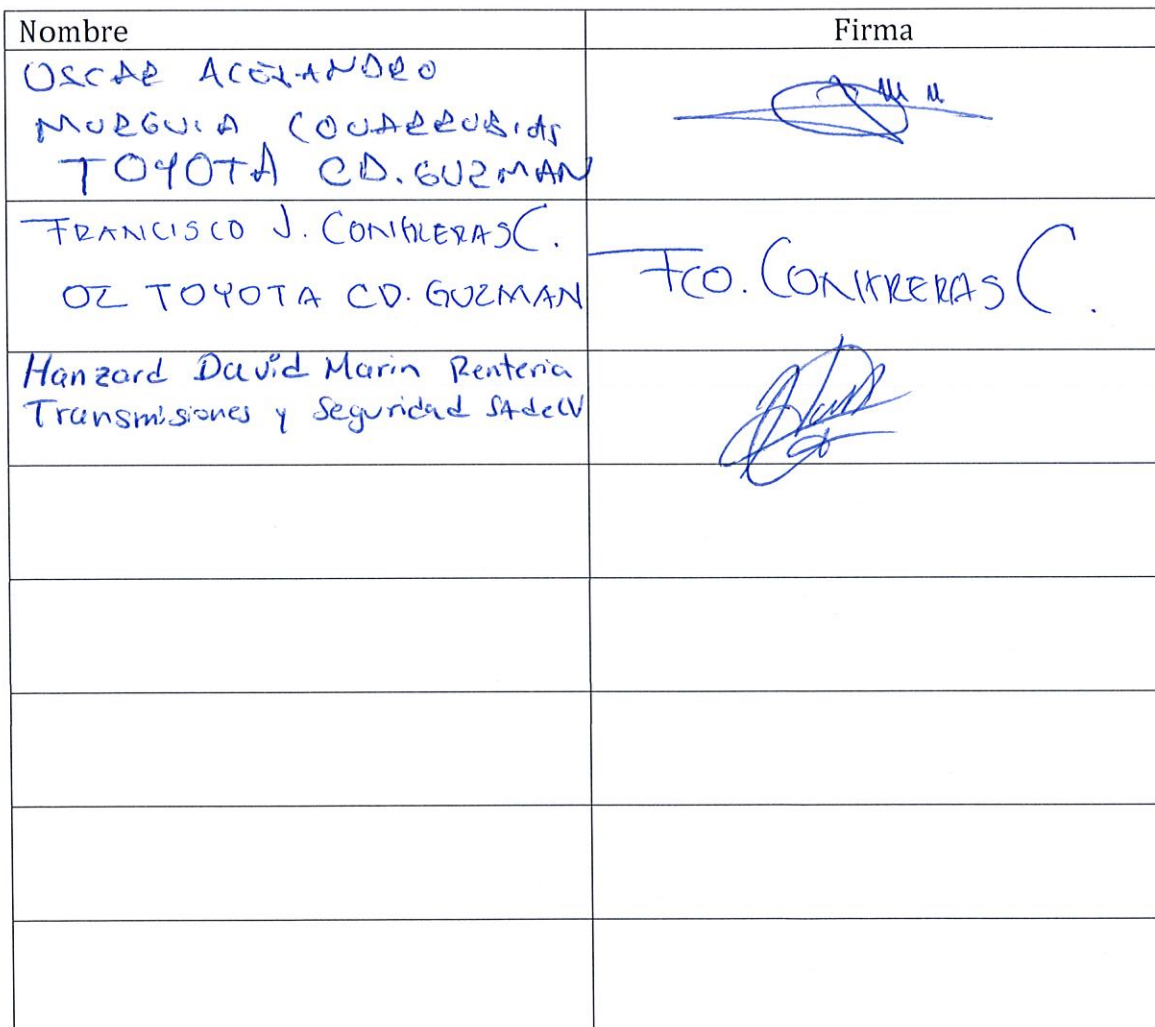 Nombre
Firma
OSCAR ALEJANDRO
MURGUIA COVARRUBIAS
TOYOTA CD. GUZMAN
FRANCISCO J. CONTRERAS C.
OZ TOYOTA CD. GUZMAN
FCO. CONTRERAS C.
Hanzard David Marin Renteria
Transmisiones y Seguridad SA de CV